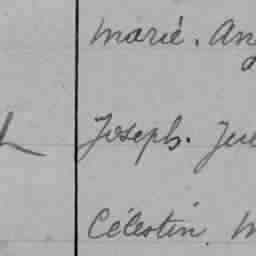 Marie. An
Joseph. Ju
Célestin. M